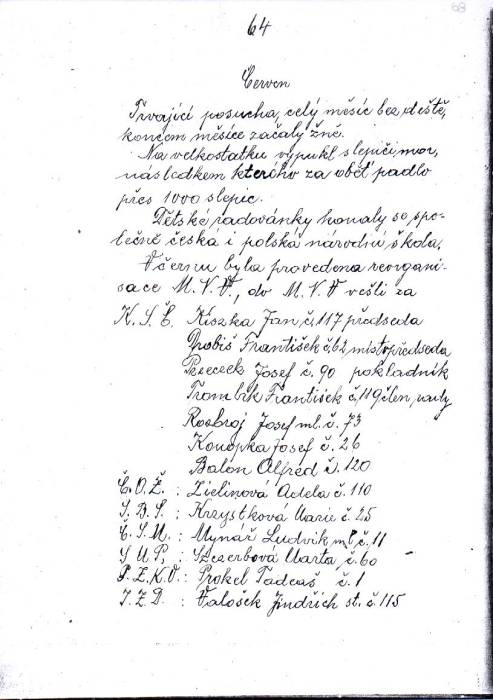 68
64
Červen
Trvající posucha, celý měsíc bez deště,
koncem měsíce začaly žně.
Na velkostatku vypukl slepičí mor,
následkem kterého za oběť padlo
přes 1000 slepic.
Dětské radovánky konaly se spo-
lečně česká i polská národní škola.
V černu byla provedena reorgani-
sace M.N.V., do M.N.V vešli za
K.S.Č. Kiszka Jan č. 117 předseda
Drobiš František č. 62 místopředseda
Josef č. 90 pokladník
Trombik František č. 119 člen rady
Rozbroj Josef ml. č. 73
Konopka Josef č. 26
Balon Alfréd č. 120
Č.O.Ž. : Zielinová Adela č. 110
S.B.S. : Krzystková Marie č. 25
Č.S.M. : Mynář Ludvik ml. č. 11
S.U.P. : Szczerbová Marta č. 60
P.Z.K.O. : Prokel Tadeáš č. 1
J.Z.D. : Valošek Jindřich st. č. 115